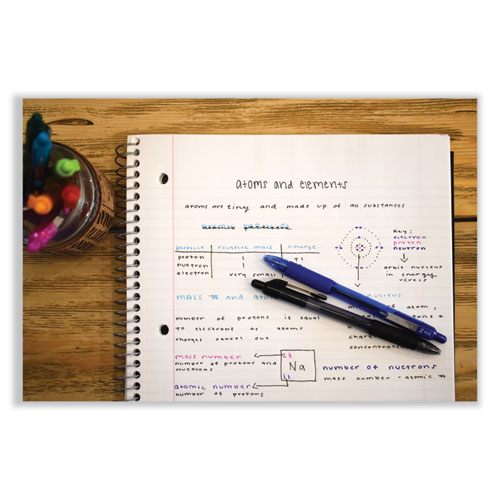 atoms and elements
atoms are tiny and made up of all substances
particle relative mass charge
proton 1 +1
neutron 1
electron very small
Key:
electron
proton
neutron
orbit nucleus
in energy
levels
mass # and
nucleus
number of protons is equal
to electrons as atomic
charges cancel out
atom,
mass number
number of protons and
neutrons
23
Na
11
atomic number
number of protons
number of neutrons
mass number - atomic #